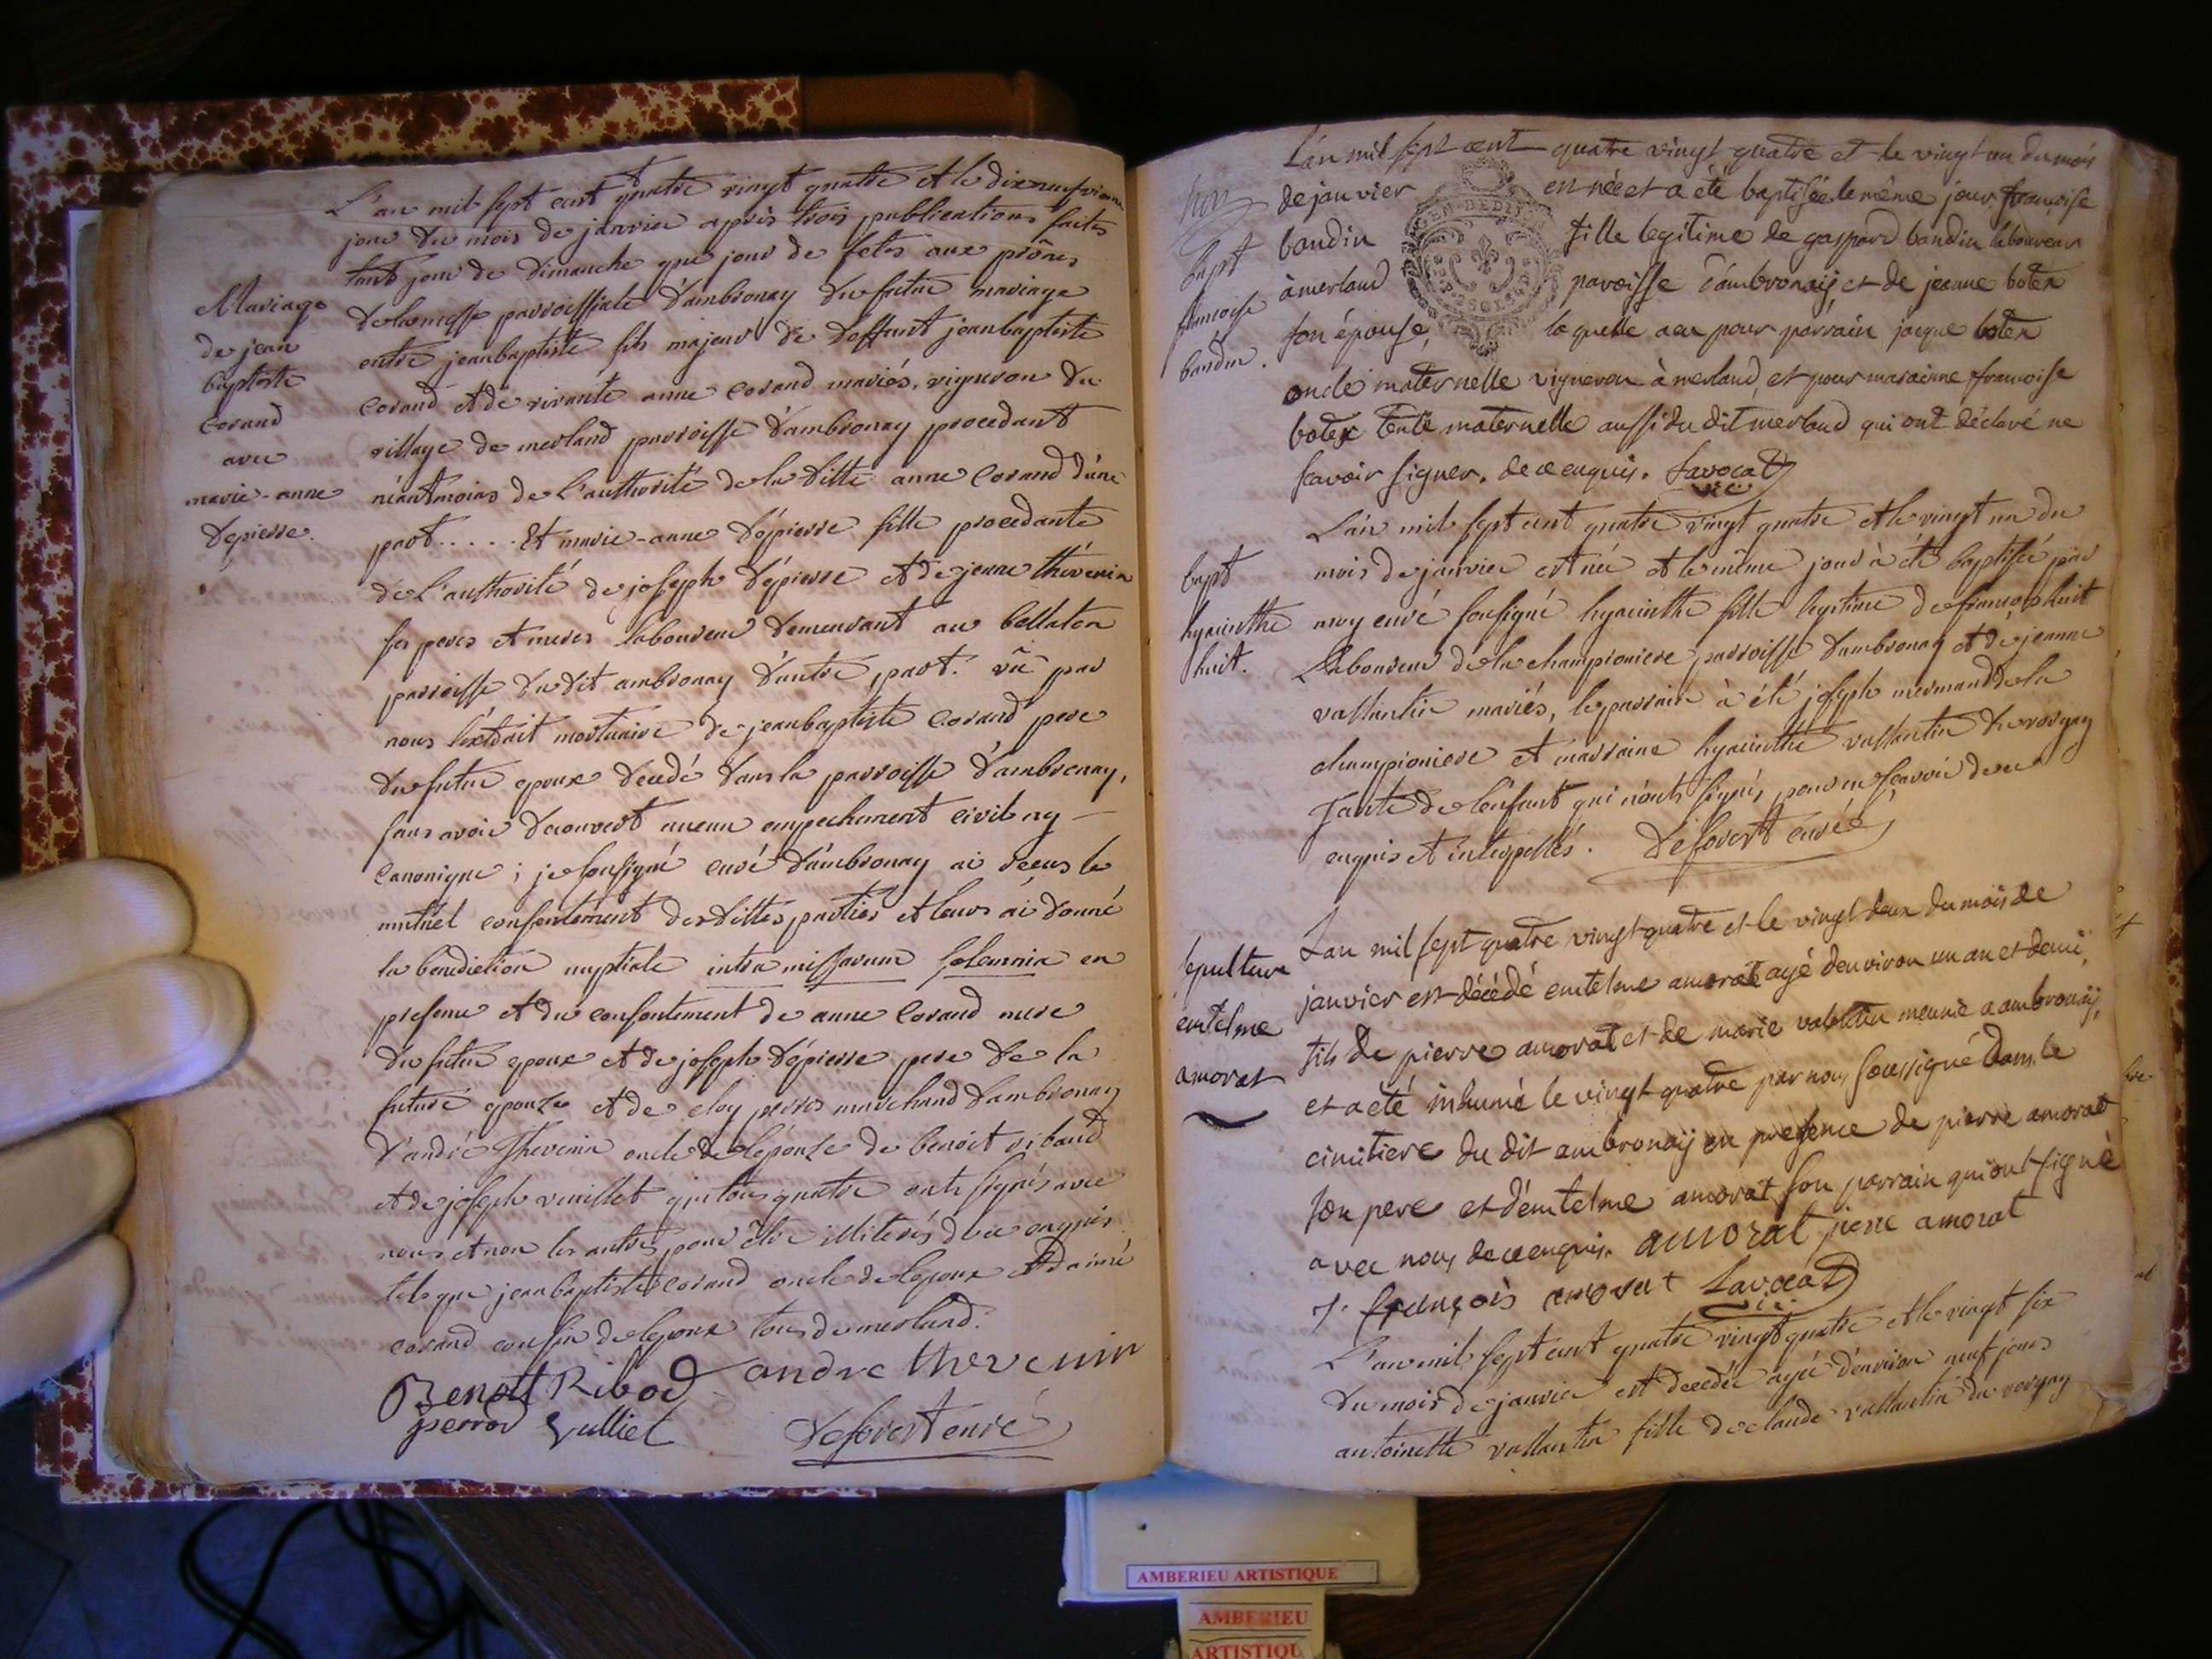 L'an mil sept cent quatre vingt quatre et le dixneufvieme
jour du mois de janvier apprès trois publications faites
tant jour de Dimanche que jour de fetes aux prônes
de la messe parroissiale d'ambronay du futur mariage
entre jeanbaptiste fils majeur de deffunt jeanbaptiste
Corand et de vivante anne Corand mariés, vigneron du
village de merland parroisse d'ambronay procedant
néantmoins de l'authorité de la ditte anne Corand d'une
part..... Et marie-anne Dépierre fille procedante
de l'authorité de joseph Dépierre et de jeanne thévenin
ses peres et meres laboureur demeurant au bellaton
parroisse du dit ambronay d'autre part. vû par
nous l'extrait mortuaire de jeanbaptiste Corand pere
du futur epoux decedé dans la parroisse d'ambronay,
sans avoir decouvert aucun empechement civil ny
canonique ; je soussigné curé d'ambronay ai receus le
mutuel consentement des dittes parties et leurs ai donné
la benediction nuptiale intra missarum solemnia en
presence et du consentement de anne Corand mere
du futur epoux et de joseph Dépierre pere de la
future epouse et de eloy marchand d'ambronay
d'andré Thevenin oncle de l'épouse de benoit ribaud
et de joseph vuillet qui tous quatre ont signés avec
nous et non les autres pour être illiterés de ce enquis
tels que jeanbaptiste Corand oncle de l'epoux et
corand cousin de l'epoux tous de merland.
Benoît Ribod andre thevenin
perrod Vulliet Deforest curé
Mariage
de jean
baptiste
Corand
avec
marie-anne
Dépierre.
L'an mil sept cent quatre vingt quatre et le vingt un du mois
de janvier est née et a été baptisée le même jour françoise
baudin fille legitime de gaspard baudin laboureur
à merland paroisse d'ambronaÿ, et de jeanne botex
son épouse, la quelle a eu pour parrain jacque botex
oncle maternelle vigneron à merland, et pour maraine francoise
botex tente maternelle aussi du dit merland qui ont déclaré ne
scavoir signer, de ce enquis. Lavocat
vic.
bapt
francoise
baudin.
L'an mil sept cent quatre vingt quatre et le vingt un du
mois de janvier est née et le même jour à été baptisée par
moy curé soussigné hyacinthe fille legitime de francois huit
Laboureur de la championiere parroisse d'ambronay et de jeanne
vallantin mariés, le parrain à été joseph mermand de la
championiere et marraine hyacinthe vallantin
Tante de l'enfant qui n'ont signés pour ne sçavoir de ce
enquis et interpellés. Deforest curé
bapt
hyacinthe
huit.
L'an mil sept quatre vingt quatre et le vingt deux du mois de
janvier est décédé entelme amorat agé d'environ un an et demi,
fils de pierre amorat et de marie valentin meunié a ambronaÿ,
et a été inhumé le vingt quatre par nous soussigné dans le
cimitiere du dit ambronaÿ en presence de pierre amorat
son pere et d'entelme amorat son parrain qui ont signé
avec nous de ce enquis. amorat piere amorat
J. françois amorat Lavocat
vic.
sepulture
entelme
amorat
L'an mil sept cent quatre vingt quatre et le vingt six
du mois de janvier est decedée agée d'environ neuf jours
antoinette vallantin fille de claude vallantin du
AMBERIEU ARTISTIQUE
AMBERIEU
ARTISTIQU